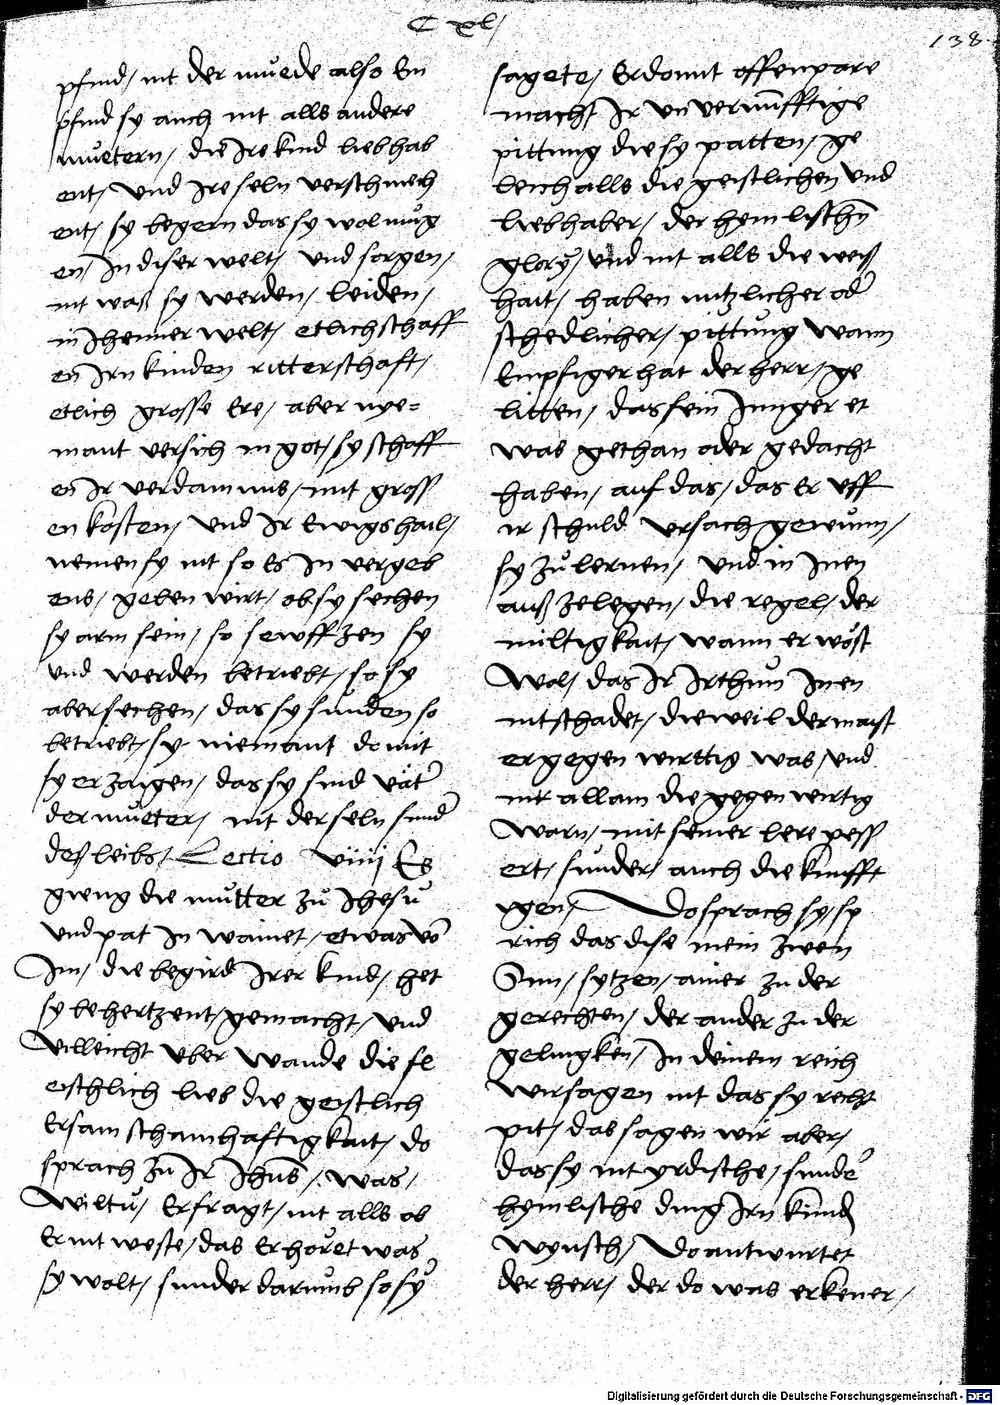 C xl/
138
pfind/ nit der muede also En
pfind sy auch nit alls andere
muetern/ die Ire kind liebhab
ent/ und Ire seln verschmech
ent/ sy begern das sy wol mug
en/ In diser welt/ und sorgen/
nit waß sy werden/ leiden/
in Ihenner welt/ etlich schaff
en Irn kinden ritterschaft/
etlich grosse Ere/ aber nye=
mant versich in got/ sy schaff
en Ir verdamnus/ mit gross
en kosten/ und Ir Ewigs hail/
nemen sy nit so Es In vergeb
ens/ geben wirt/ ob sy sechen
sy arm sein/ so sewffzen sy
und werden betriebt/ so sy
aber sechen/ das sy sunden so
betriebt/ sy niemant domit
sy erzaigen/ das sy sind vät
der mueter/ nit der seln sund
deß leibs/ Lectio viiij Es
gieng die mutter zu Ihesu
und pat In wainet/ etwas vo
Im/ die begird Irer kind/ het
sy behertzent/ gemacht/ und
villeicht uber wande die fl
eischlich lieb die geistlich
Ersam schamhaftigkait/ do
sprach zu Ir Ihus/ was/
wiltu/ Er fragt/ nit alls ob
Er nit weste/ das Er horet was
sy wolt/ sunder darumb so sy
sagete/ Er domit offenpare
macht Ir unvernunfftige
pittung die sy patten/ ge
leich alls die geistlichen und
liebhaber/ der hymlischn
glory/ und nit alls die weis
hait/ haben nutzlicher od
schedlicher/ pittung wann
Empfiger hat der herr/ ge
litten/ das sein Junger et
was gethan oder gedacht
haben/ auf das/ das Er uff
ir schuld ursach gewunn/
sy zu lernen/ und in Inen
auß zelegen/ die regel/ der
miltigkait/ wann er wost
wol/ das Ir Irthum Inen
nit schadet/ dieweil der maist
er gegen wirttig was/ und
nit allain die gegenwirtig
warn/ mit seiner lere pess
ert/ sunder/ auch die kunfft
igen/ Do sprach sy/ sp
rich das dise mein zwen
Sun/ sytzen/ ainer zu der
gerechten/ der ander zu der
gelingken/ In deinem reich
wir sagen nit das sy recht
pit/ das sagen wir aber/
das sy nit yrdische/ sunde
hymlische ding Irn kindn
wynsch/ Do antwurtet
der herr/ der do was erkener/
Digitalisierung gefördert durch die Deutsche Forschungsgemeinschaft - DFG